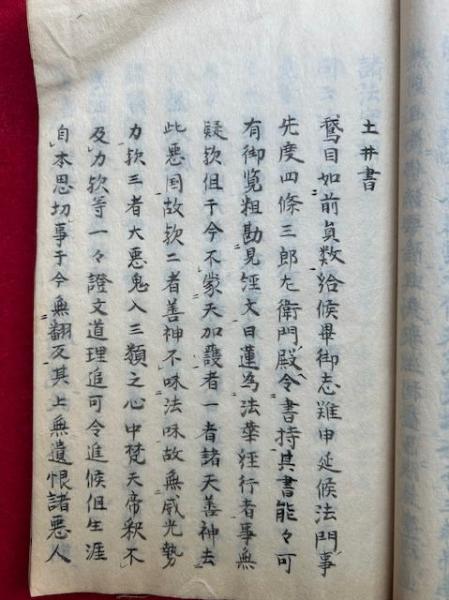 土井書
鵞目如前貟数給候畢御志難申延候法門事
先度四條三郎左衛門殿令書持其書能々可
有御覧粗勘見經文日蓮為法華經行者事無
疑欤但于今不蒙天加護者一者諸天善神去
此悪国故欤二者善神不味法味故無威光勢
力欤三者大悪鬼入三類之心中梵天帝釈不
及力欤等一々證文道理追可令進候但生涯
自本思切事于今無翻反其上無遺恨諸悪人